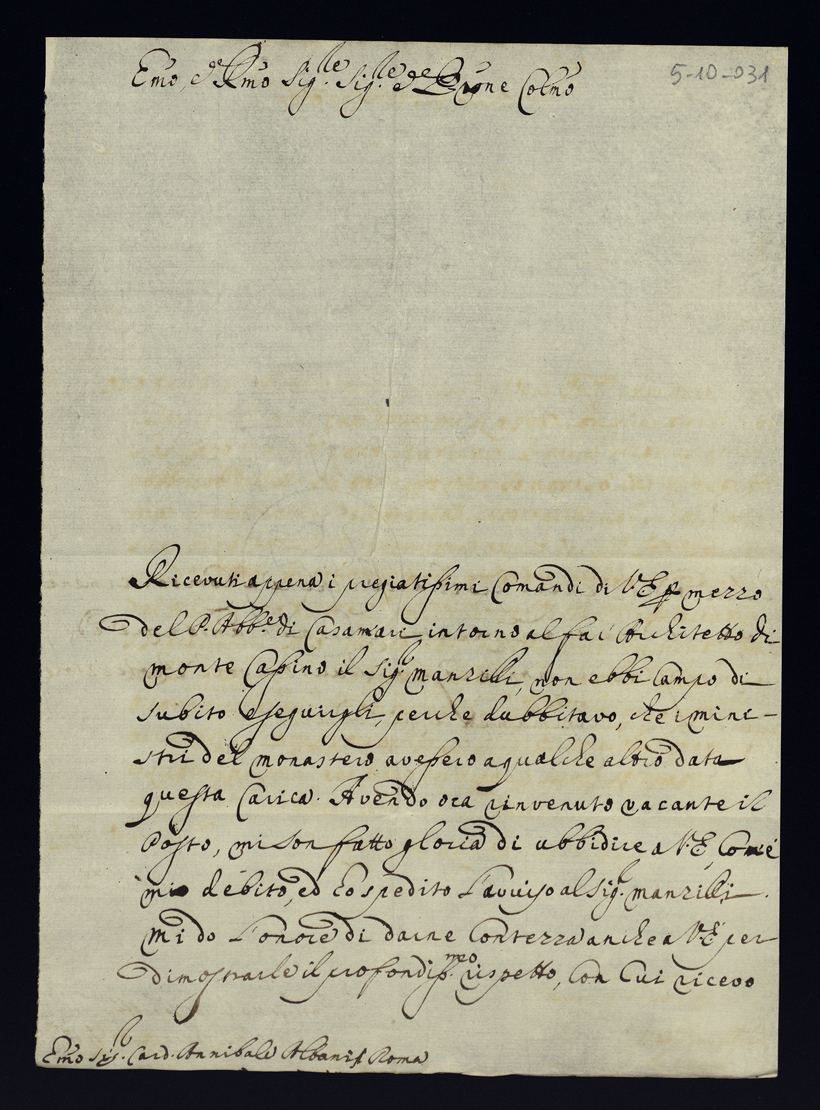 5-10-031
Emo, e Rmo Sig.re Sig.re e Pne Colmo
Ricevuti appena i pregiatissimi Comandi di V.E. per mezzo
del P. Abb.e di Casamari intorno al far Architetto di
monte Cassino il Sig.r manzilli, non ebbi Campo di
subito eseguirgli, perche dubbitavo, che i mini-
stri del monastero avessero a qualche altro data
questa Carica. Avendo ora rinvenuto vacante il
Posto, mi son fatto gloria di ubbidire a V.E., Com'é
mio debito, ed ho spedito l'avviso al Sig.r manzilli.
Mi do l'onore di darne Contezza anche a V.E. per
dimostrarle il profondiss.mo rispetto, Con Cui ricevo
Emo Sig.r Card. Annibale Albani Roma